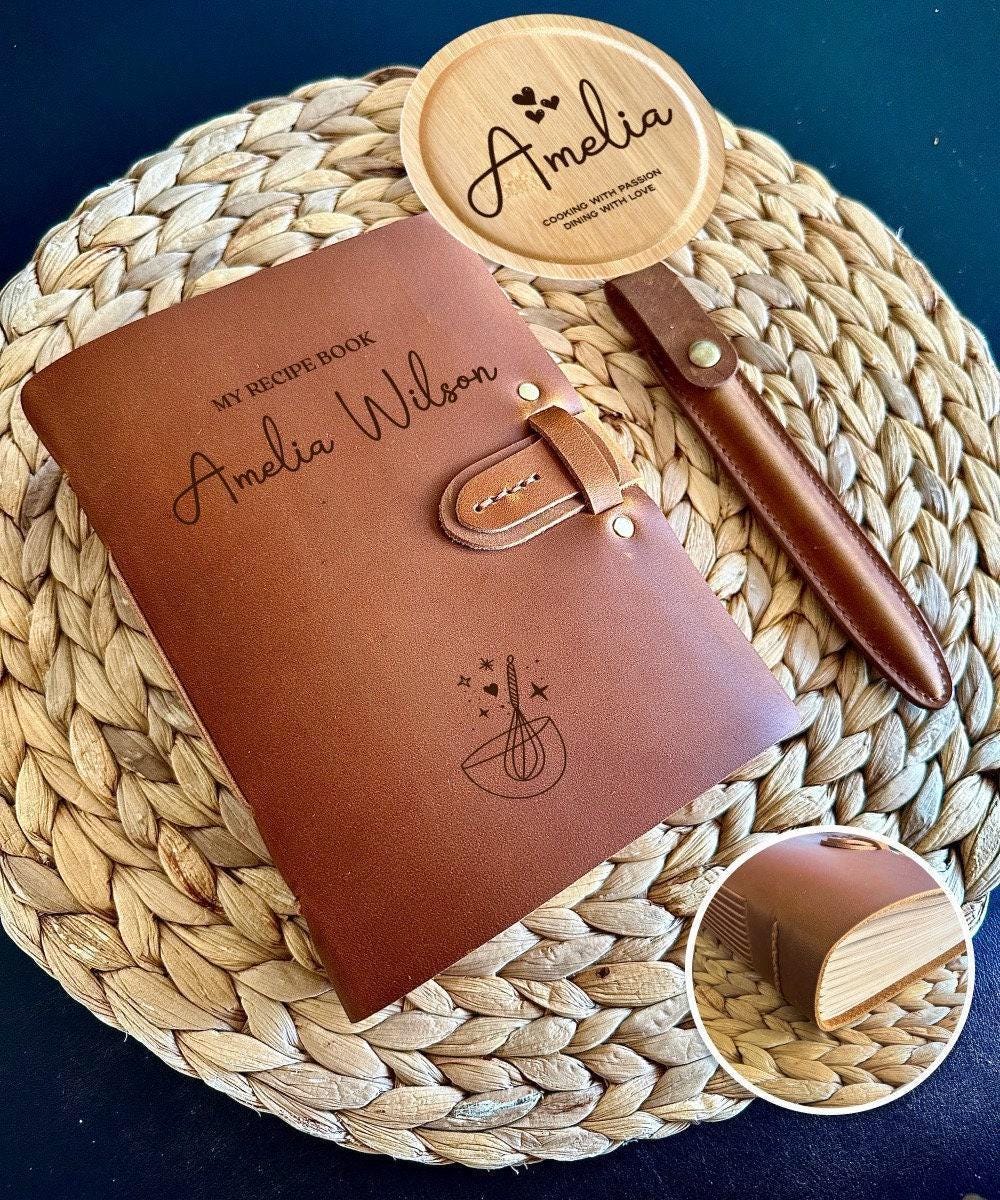 Amelia
COOKING WITH PASSION
DINING WITH LOVE
MY RECIPE BOOK
Amelia Wilson